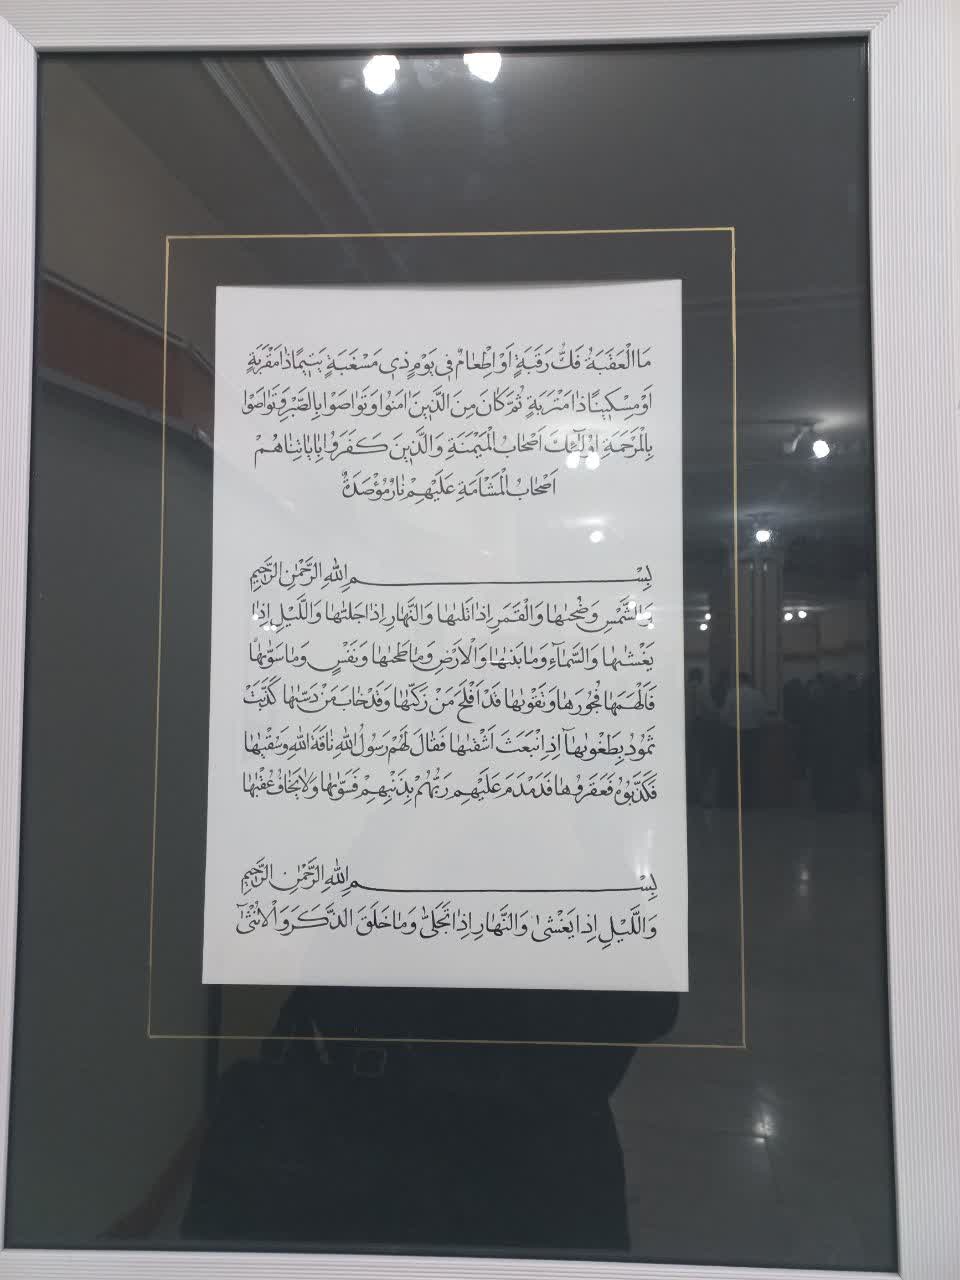 مَا الْعَقَبَةُ فَكُّ رَقَبَةٍ اَوْ اِطْعٰامٌ فٖى يَوْمٍ ذٖى مَسْغَبَةٍ يَتٖيمًا ذٰا مَقْرَبَةٍ
اَوْ مِسْكٖينًا ذٰا مَتْرَبَةٍ ثُمَّ كٰانَ مِنَ الَّذٖينَ اٰمَنُوا وَ تَوٰاصَوْا بِالصَّبْرِ وَ تَوٰاصَوْا
بِالْمَرْحَمَةِ اُولٰٓئِكَ اَصْحٰابُ الْمَيْمَنَةِ وَ الَّذٖينَ كَفَرُوا بِاٰيٰاتِنٰا هُمْ
اَصْحٰابُ الْمَشْاَمَةِ عَلَيْهِمْ نٰارٌ مُؤْصَدَةٌ
بِسْمِ اللّٰهِ الرَّحْمٰنِ الرَّحٖيمِ
وَ الشَّمْسِ وَ ضُحٰىهٰا وَ الْقَمَرِ اِذٰا تَلٰىهٰا وَ النَّهٰارِ اِذٰا جَلّٰىهٰا وَ اللَّيْلِ اِذٰا
يَغْشٰىهٰا وَ السَّمٰٓاءِ وَ مٰا بَنٰىهٰا وَ الْاَرْضِ وَ مٰا طَحٰىهٰا وَ نَفْسٍ وَ مٰا سَوّٰىهٰا
فَاَلْهَمَهٰا فُجُورَهٰا وَ تَقْوٰىهٰا قَدْ اَفْلَحَ مَنْ زَكّٰىهٰا وَ قَدْ خٰابَ مَنْ دَسّٰىهٰا كَذَّبَتْ
ثَمُودُ بِطَغْوٰىهٰٓا اِذِ انْبَعَثَ اَشْقٰىهٰا فَقٰالَ لَهُمْ رَسُولُ اللّٰهِ نٰاقَةَ اللّٰهِ وَ سُقْيٰهٰا
فَكَذَّبُوهُ فَعَقَرُوهٰا فَدَمْدَمَ عَلَيْهِمْ رَبُّهُمْ بِذَنْبِهِمْ فَسَوّٰىهٰا وَ لٰا يَخٰافُ عُقْبٰىهٰا
بِسْمِ اللّٰهِ الرَّحْمٰنِ الرَّحٖيمِ
وَ اللَّيْلِ اِذٰا يَغْشٰى وَ النَّهٰارِ اِذٰا تَجَلّٰى وَ مٰا خَلَقَ الذَّكَرَ وَ الْاُنْثٰىٓ